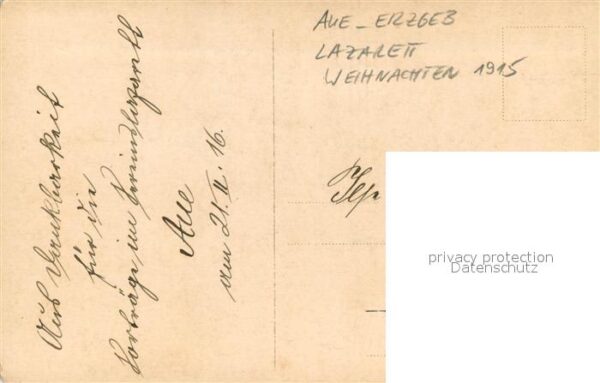 Aus Dankbarkeit
für die
Vorträge im Vereinslazarett
Aue
am 21.II.16.
AUE - ERZGEB
LAZARETT
WEIHNACHTEN 1915
privacy protection
Datenschutz